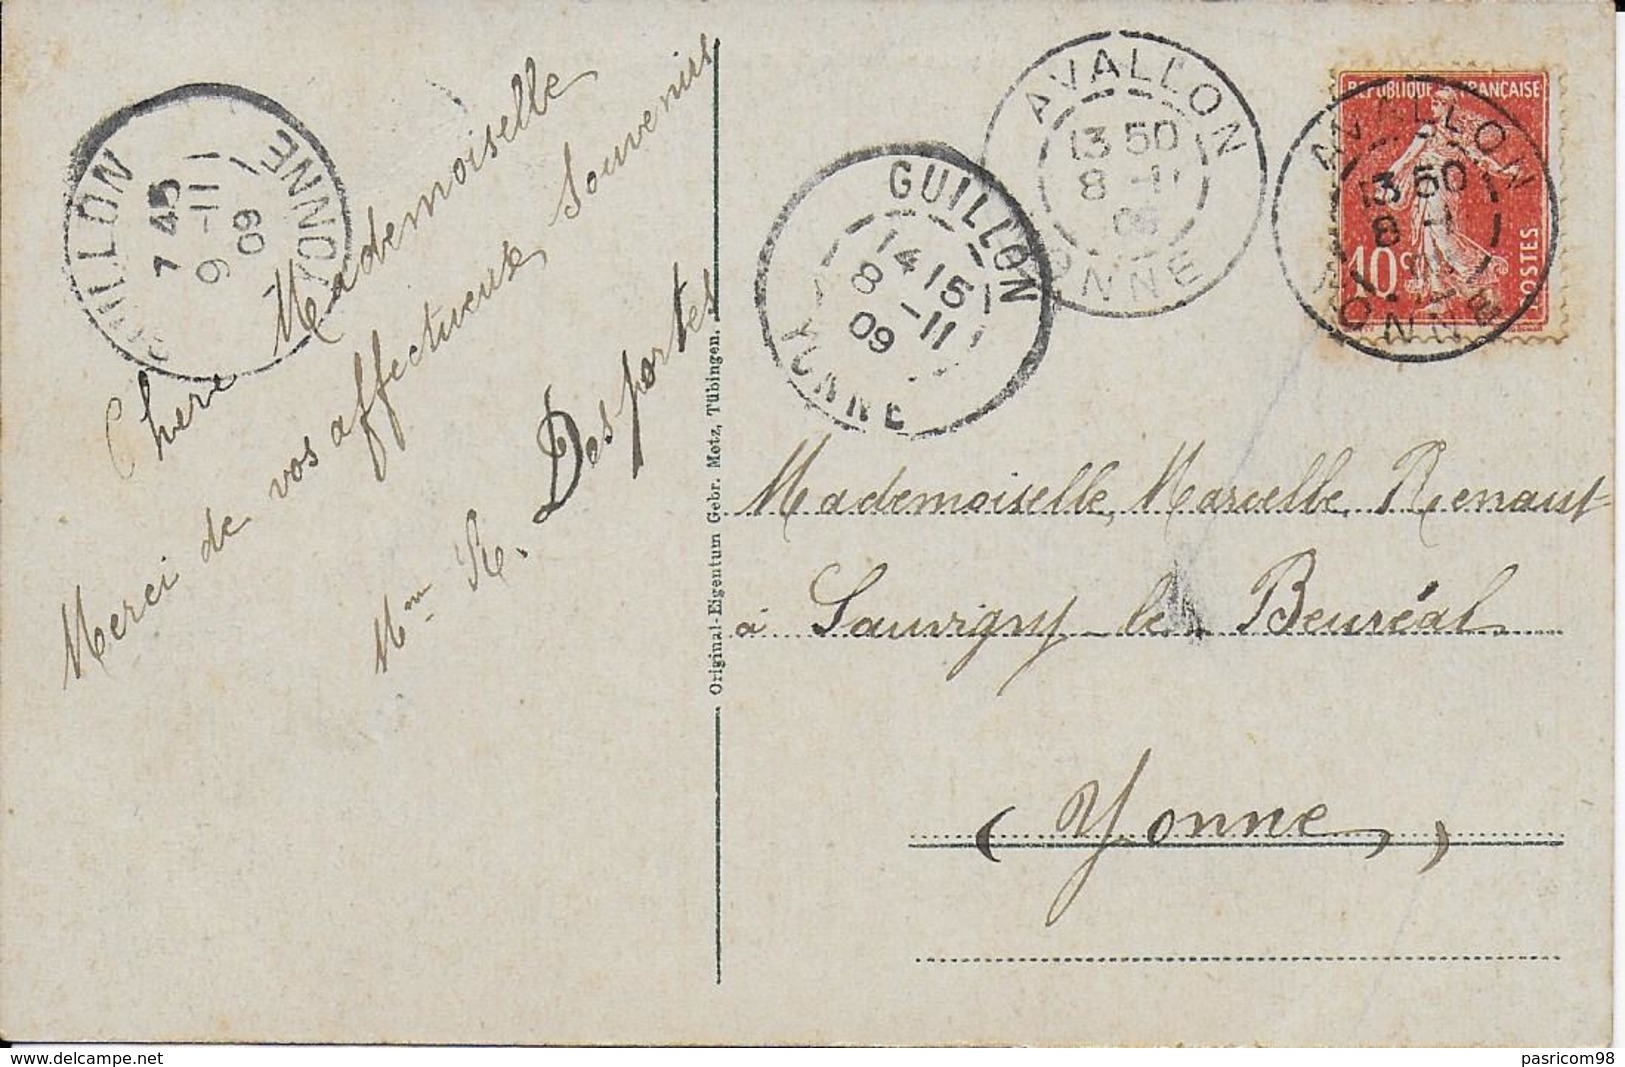 Chere Mademoiselle
Merci de vos affectueux souvenirs
Mme R. Desportes
GUILLON
7 45
9 -11
09
YONNE
Original-Eigentum Gebr. Metz, Tübingen.
GUILLON
14 15
8 -11
09
YONNE
AVALLON
13 50
8 -11
YONNE
REPUBLIQUE FRANÇAISE
10 c
POSTES
AVALLON
13 50
8 -1
YONNE
Mademoiselle Marcelle Renaut
à Sauvigny-le Beuréal
(Yonne)
www.delcampe.net
pasricom98